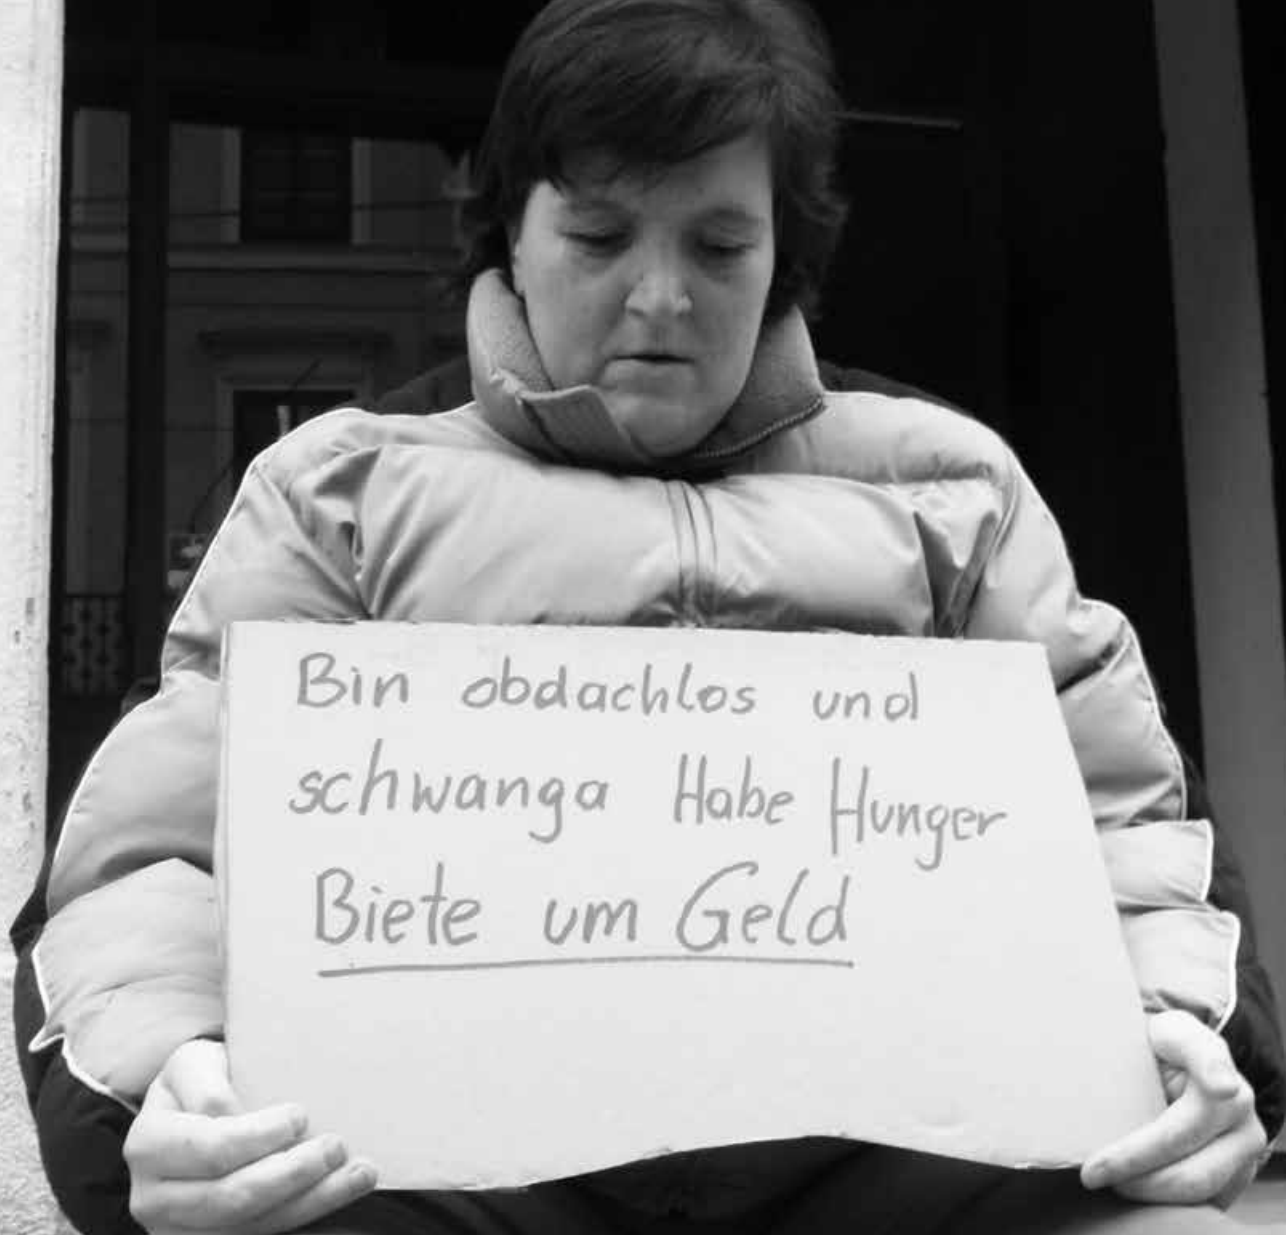 Bin obdachlos und
schwanga Habe Hunger
Biete um Geld